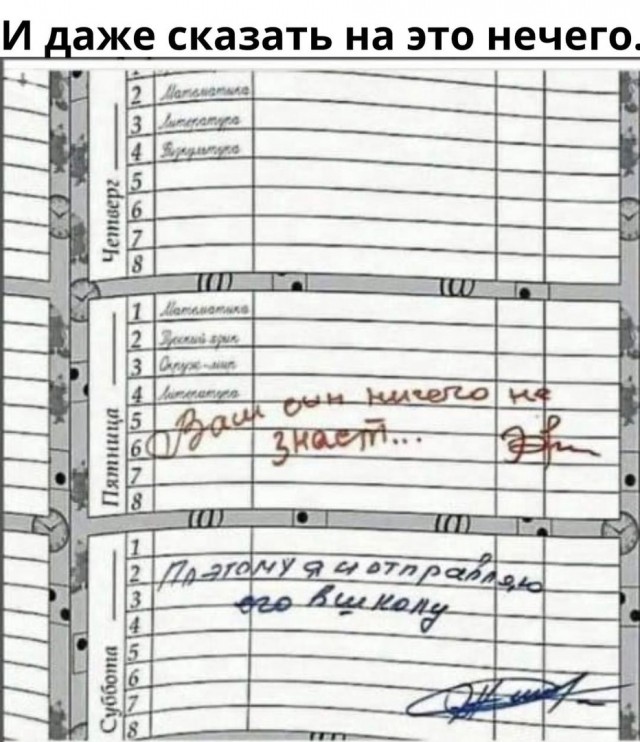 И даже сказать на это нечего.
Четверг
2 Математика
3 Литература
4 Физкультура
5
6
7
8
Пятница
1 Математика
2 Русский язык
3 Окруж. мир
4 Литература
5
6
7
8
Ваш сын ничего не
знает...
Суббота
1
2
3
4
5
6
7
8
Поэтому я и отправляю
его в школу